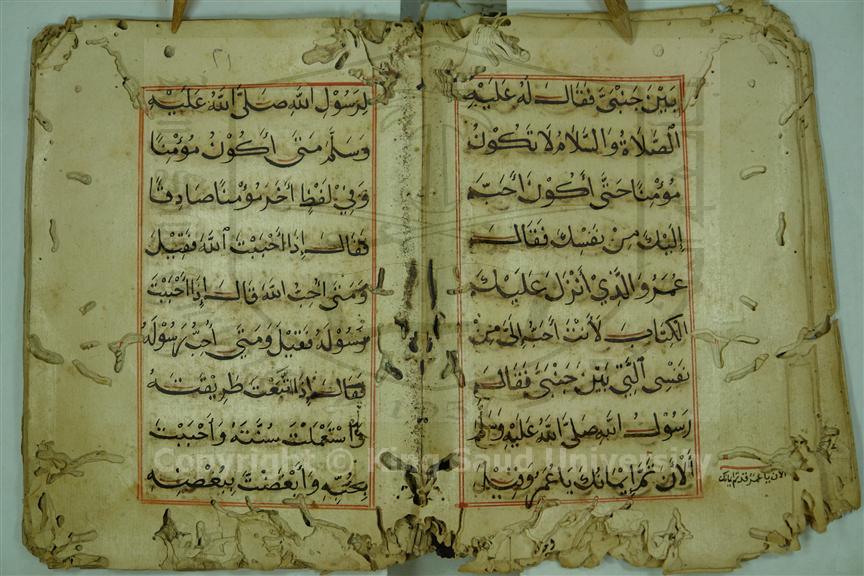 بَيْنَ جَنْبَيَّ فَقَالَ لَهُ عَلَيْهِ
الصَّلَاةُ وَالسَّلَامُ لَا تَكُوْنُ
مُؤْمِنًا حَتَّى أَكُوْنَ أَحَبَّ
إِلَيْكَ مِنْ نَفْسِكَ فَقَالَ
عُمَرُ وَالَّذِيْ أَنْزَلَ عَلَيْكَ
الْكِتَابَ لَأَنْتَ أَحَبُّ إِلَيَّ مِنْ
نَفْسِي الَّتِيْ بَيْنَ جَنْبَيَّ فَقَالَ
رَسُوْلُ اللَّهِ صَلَّى اللَّهُ عَلَيْهِ وَسَلَّم
الْأٰنَ تَمَّ إِيْمَانُكَ يَا عُمَرُ وَقِيْلَ
الان يا عمر قد تم
لِرَسُوْلِ اللَّهِ صَلَّى اللَّهُ عَلَيْهِ
وَسَلَّمَ مَتَى أَكُوْنُ مُؤْمِنًا
وَفِيْ لَفْظٍ أٰخَرَ مُؤْمِنًا صَادِقًا
فَقَالَ إِذَا أَحْبَبْتَ اللَّهَ فَقِيْلَ
وَمَتَى أُحِبُّ اللَّهَ قَالَ إِذَا أَحْبَبْتَ
رَسُوْلَهُ فَقِيْلَ وَمَتَى أُحِبُّ رَسُوْلَهُ
فَقَالَ إِذَا اتَّبَعْتَ طَرِيْقَتَهُ
وَاسْتَعْمَلْتَ سُنَّتَهُ وَأَحْبَبْتَ
بِحُبِّهِ وَأَبْغَضْتَ بِبُغْضِهِ
٢١
Copyright © King Saud University